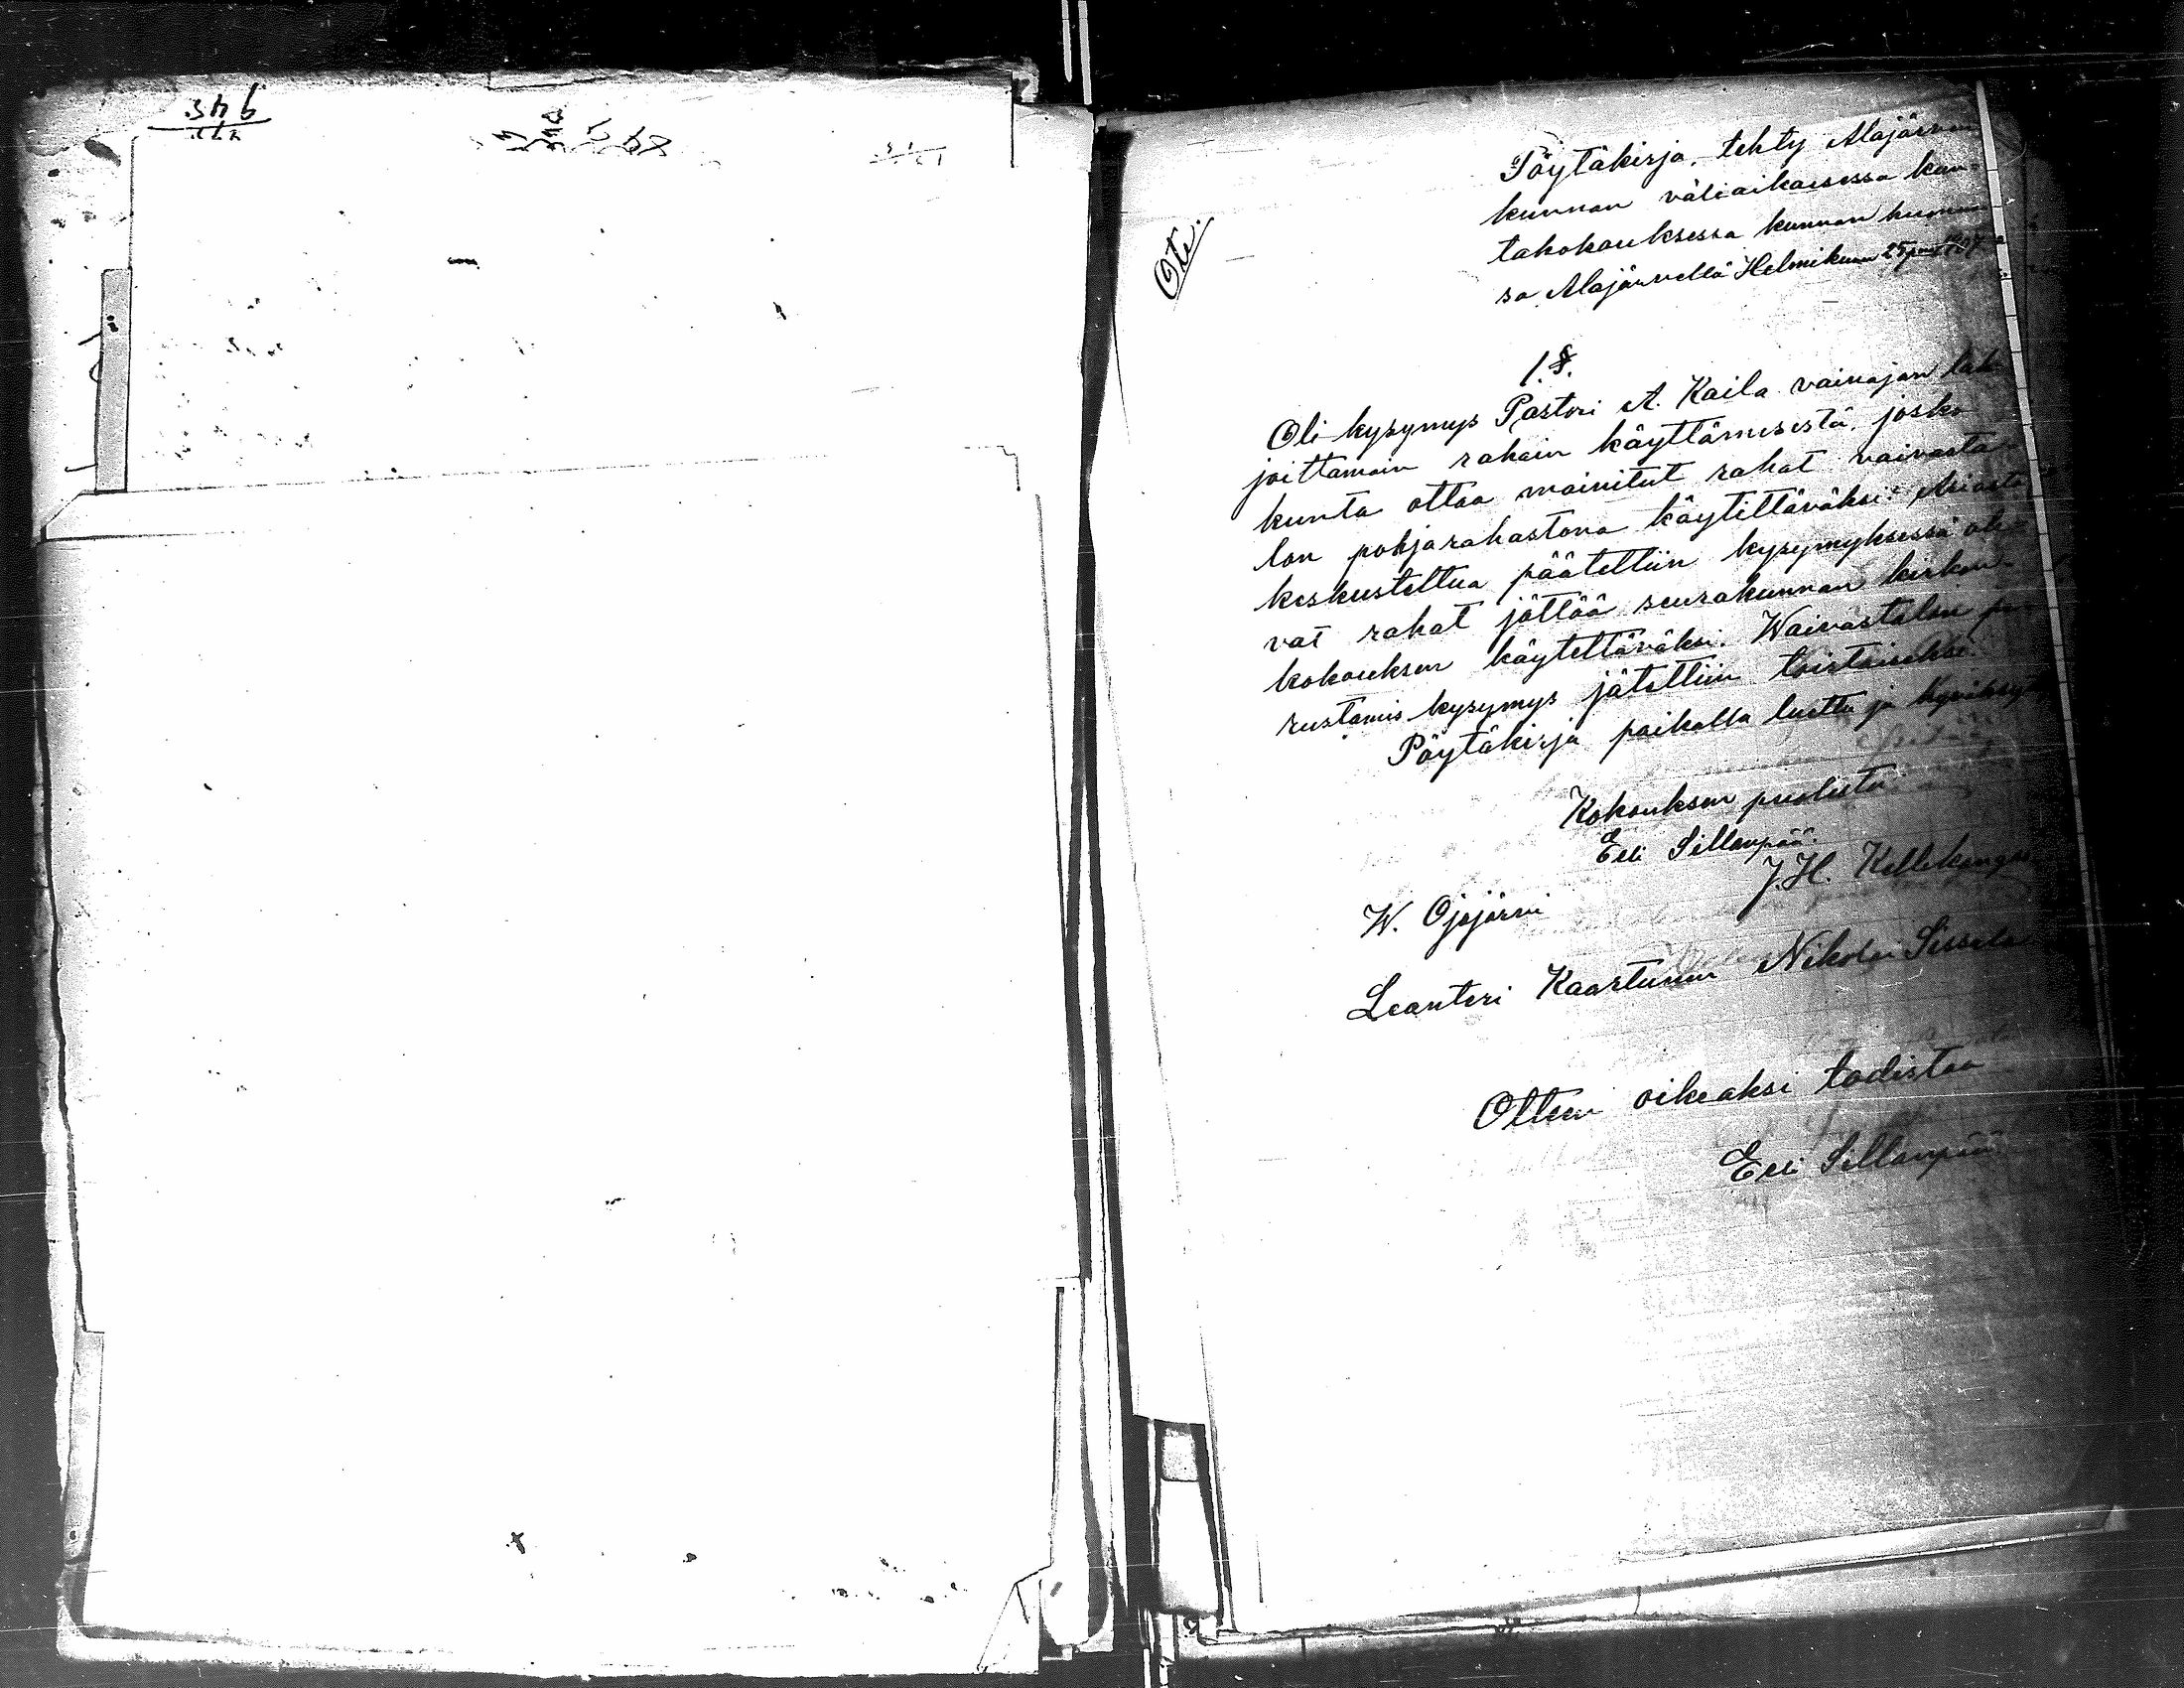 Ote.
Pöytäkirja, tehty Alajärven
kunnan väliaikaisessa kun-
takokouksessa kunnan huonees-
sa Alajärvellä Helmikuun 25 p:nä
1. §.
Oli kysymys Pastori A. Kaila vainajan lah-
joittamain rahain käyttämisestä, josko
kunta ottaa mainitut rahat vaivasta-
lon pohjarahastona käytettäväksi. Asiasta
keskusteltua päätettiin kysymyksessä ole-
vat rahat jättää seurakunnan kirkon-
kokouksen käytettäväksi. Waivastalon pe-
rustamis kysymys jätettiin toistaiseksi.
Pöytäkirja paikalla luettu ja hyväksytty
Kokouksen puolesta
Eeli Sillanpää.
W. Ojajärvi J. H. Kellokangas
Leanteri Kaartunen Nikolai Sissala
Otteen oikeaksi todistaa
Eeli Sillanpää